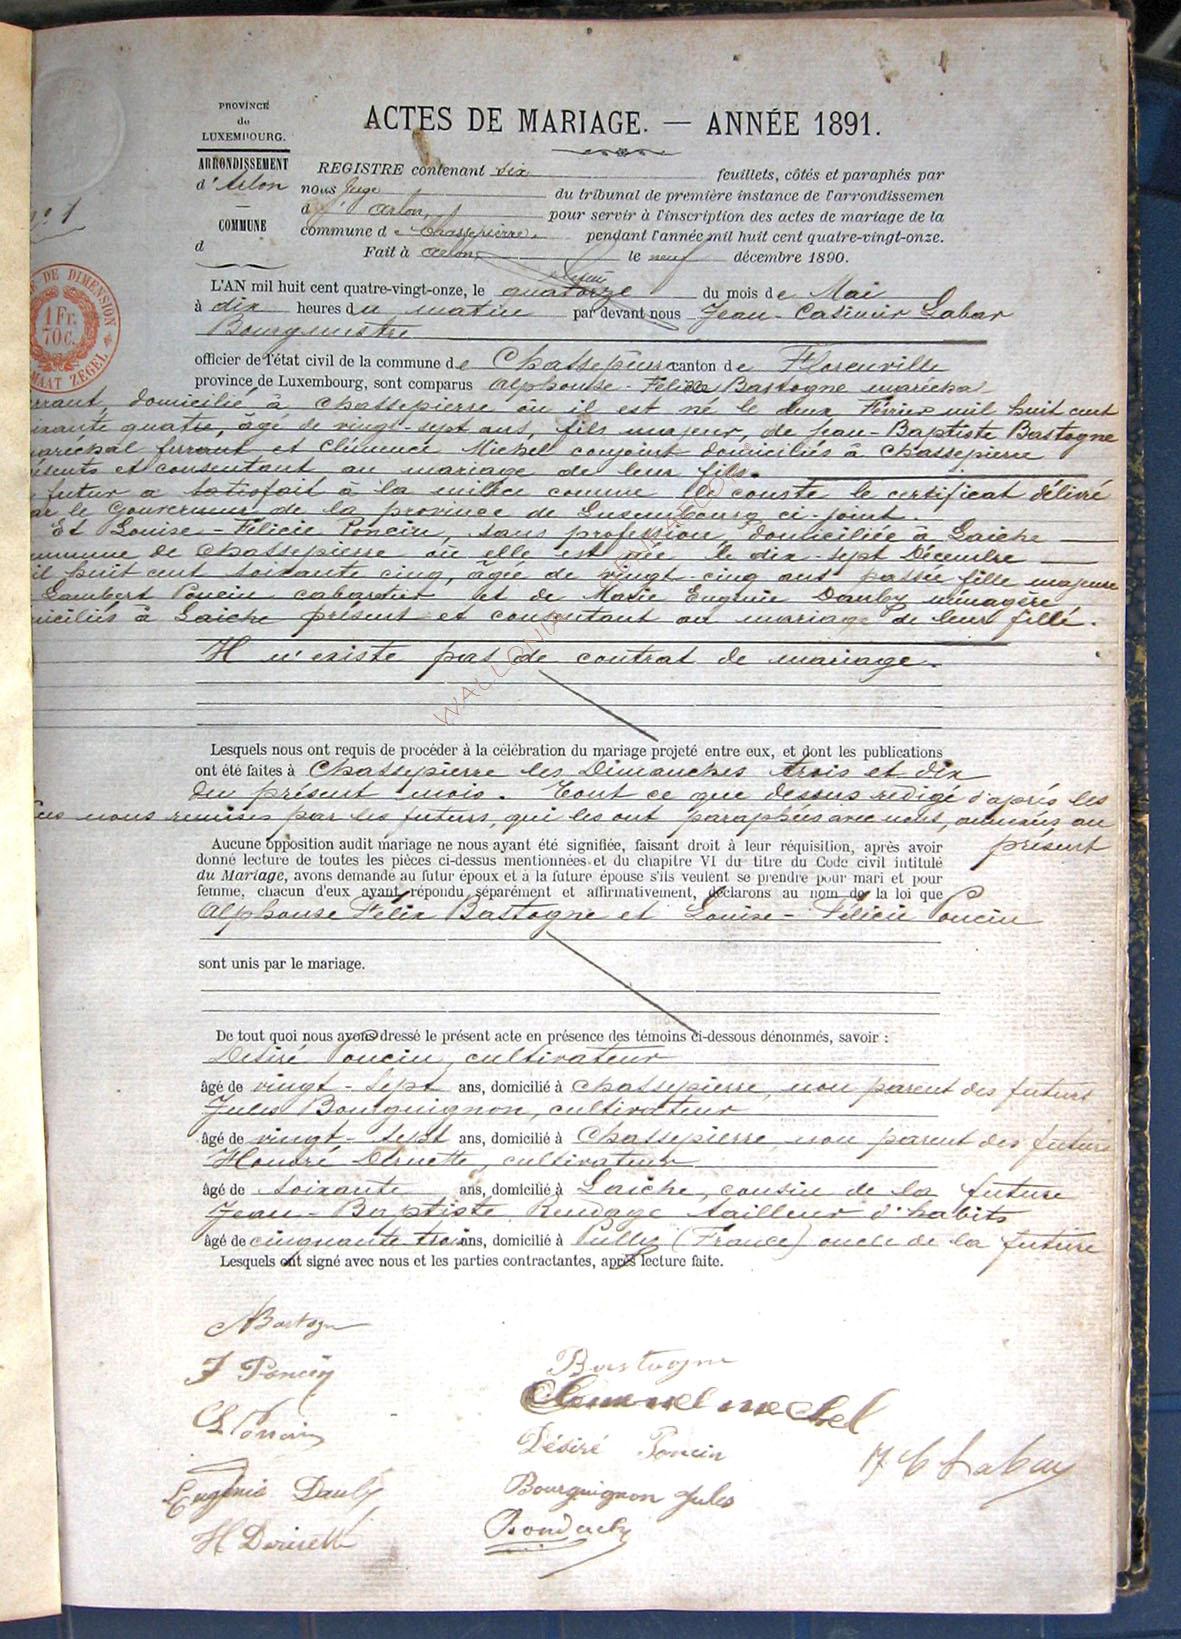 PROVINCE
de
LUXEMBOURG.
ARRONDISSEMENT
d'Arlon
COMMUNE
d
N° 1
ACTES DE MARIAGE. — ANNÉE 1891.
REGISTRE contenant six feuillets, côtés et paraphés par
nous Juge du tribunal de première instance de l'arrondissemen
d'Arlon, pour servir à l'inscription des actes de mariage de la
commune de Chassepierre pendant l'année mil huit cent quatre-vingt-onze.
Fait à Arlon le neuf décembre 1890.
DE DIMENSION
1 Fr.
70 C.
MAAT ZEGEL
L'AN mil huit cent quatre-vingt-onze, le quatorze du mois de Mai
à dix heures du matin par devant nous Jean-Casimir Labar
Bourgmestre
officier de l'état civil de la commune de Chassepierre canton de Florenville
province de Luxembourg, sont comparus Alphonse-Félix Bastogne marécha
rrant, domicilié à Chassepierre où il est né le deux Février mil huit cent
ixante quatre, âgé de vingt-sept ans, fils majeur, de Jean-Baptiste Bastogne
maréchal ferrant et Clémence Michel conjoint domiciliés à Chassepierre
résents et consentant au mariage de leur fils.
e futur a satisfait à la milice comme le conste le certificat délivré
ar le Gouverneur de la province de Luxembourg ci-joint.
Et Louise-Félicie Poncin, sans profession, domiciliée à Laiche
ommune de Chassepierre où elle est née le dix-sept Décembre
il huit cent soixante cinq, âgée de vingt-cinq ans passée fille majeure
Lambert Poncin cabaretier et de Marie Eugénie Dauby ménagère
miciliés à Laiche présent et consentant au mariage de leur fille.
Il n'existe pas de contrat de mariage.
Lesquels nous ont requis de procéder à la célébration du mariage projeté entre eux, et dont les publications
ont été faites à Chassepierre les Dimanches trois et dix
du présent mois. Tout ce que dessus redigé d'après les
ces nous remises par les futurs, qui les ont paraphées avec nous, annexées au
présent
Aucune opposition audit mariage ne nous ayant été signifiée, faisant droit à leur réquisition, après avoir
donné lecture de toutes les pièces ci-dessus mentionnées et du chapitre VI du titre du Code civil intitulé
du Mariage, avons demandé au futur époux et à la future épouse s'ils veulent se prendre pour mari et pour
femme, chacun d'eux ayant répondu séparément et affirmativement, déclarons au nom de la loi que
Alphonse Félix Bastogne et Louise-Félicie Poncin
sont unis par le mariage.
De tout quoi nous avons dressé le présent acte en présence des témoins ci-dessous dénommés, savoir :
Désiré Poncin, cultivateur
âgé de vingt-sept ans, domicilié à Chassepierre, non parent des futurs
Jules Bourguignon, cultivateur
âgé de vingt-sept ans, domicilié à Chassepierre non parent des futurs
Honoré Deruette, cultivateur
âgé de soixante ans, domicilié à Laiche, cousin de la future
Jean-Baptiste tailleur d'habits
âgé de cinquante trois ans, domicilié à (France) oncle de la future
Lesquels ont signé avec nous et les parties contractantes, après lecture faite.
ABastogn
F Poncin
L Poncin
Eugénie Dauby
Bastogne
Michel
Désiré Poncin
Bourguignon Jules
Labar
WALLONIA